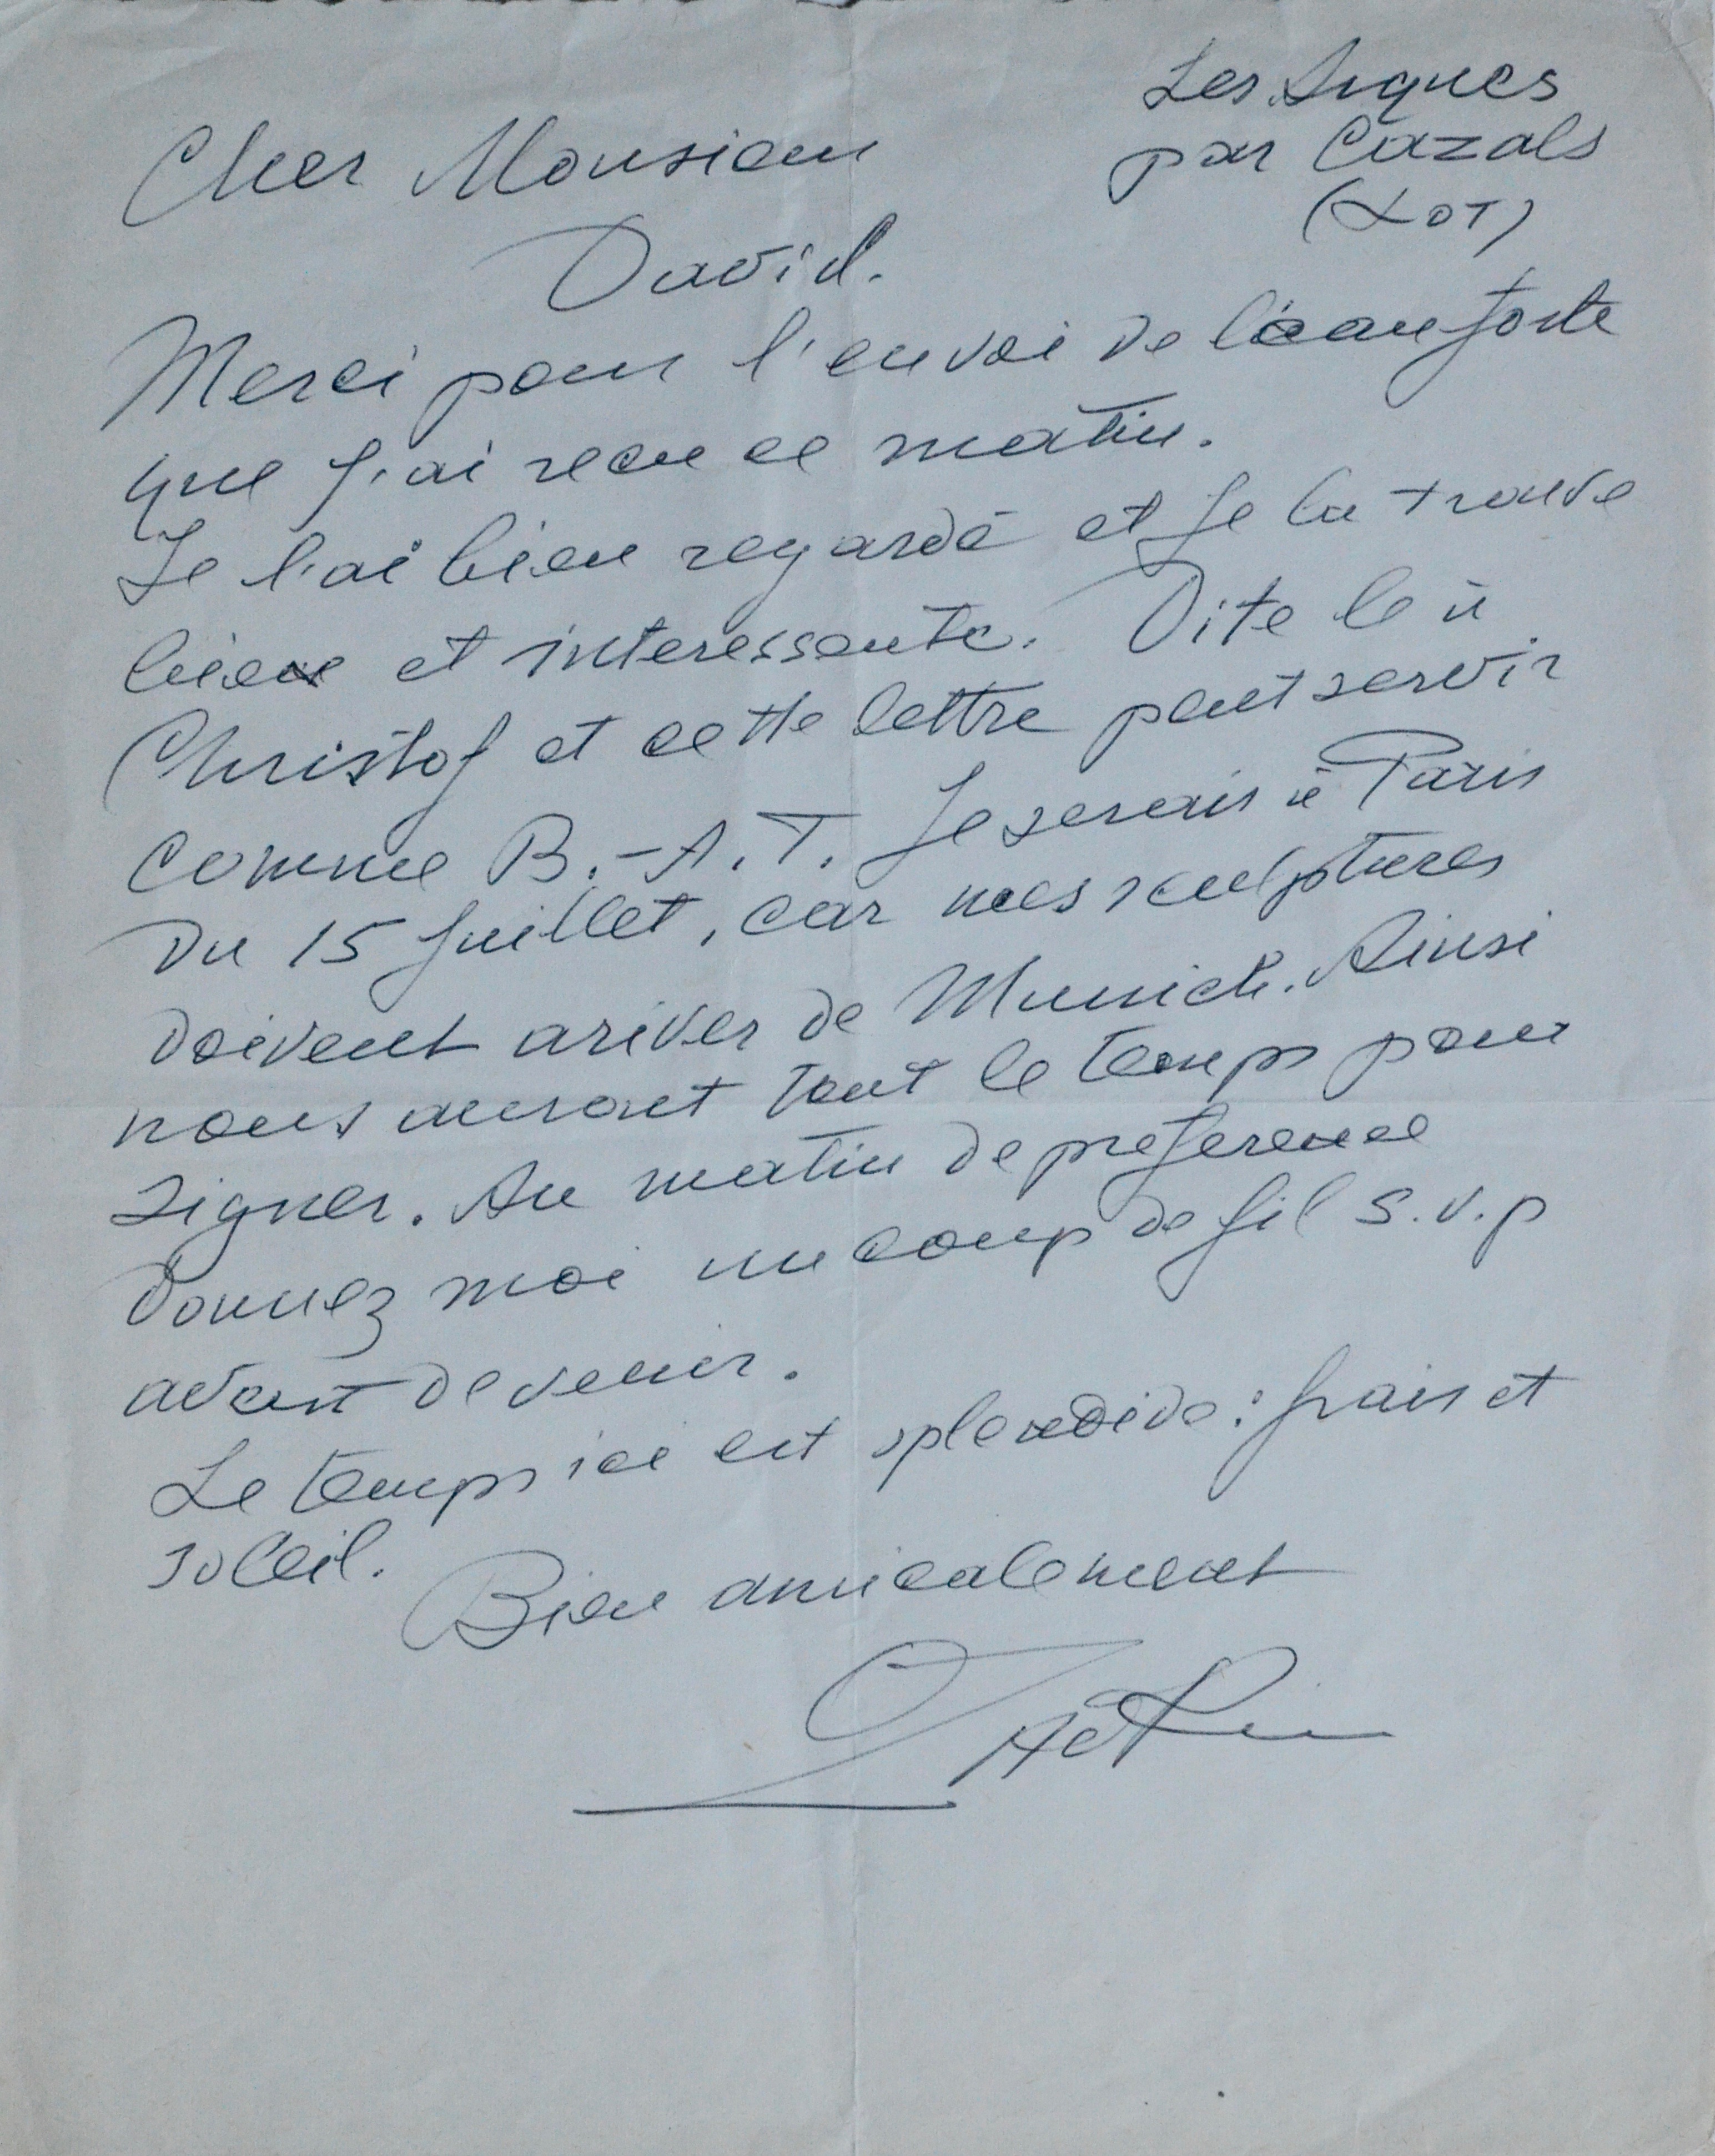 Les Arques
par Cazals
(LOT)
Cher Monsieur
David.
Merci pour l'envoi de l'eau forte
que j'ai recu ce matin.
Je l'ai bien regardé et je la trouve
bien et interessante. Dite le à
Christof et cette lettre peut servir
comme B.-A.T. Je serais à Paris
du 15 juillet, car mes sculptures
doivent ariver de Munich. Ainsi
nous auront tout le temps pour
signer. Au matin de preference
Donnez moi un coup de fil s.v.p
avant de venir.
Le temps ici est splendide: frais et
soleil.
Bien amicalement
Zadkin